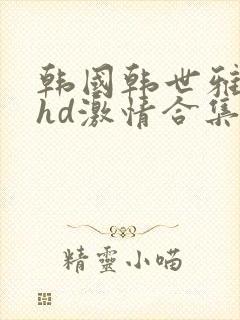 韩国韩世雅
hd激情合集
精靈小喵